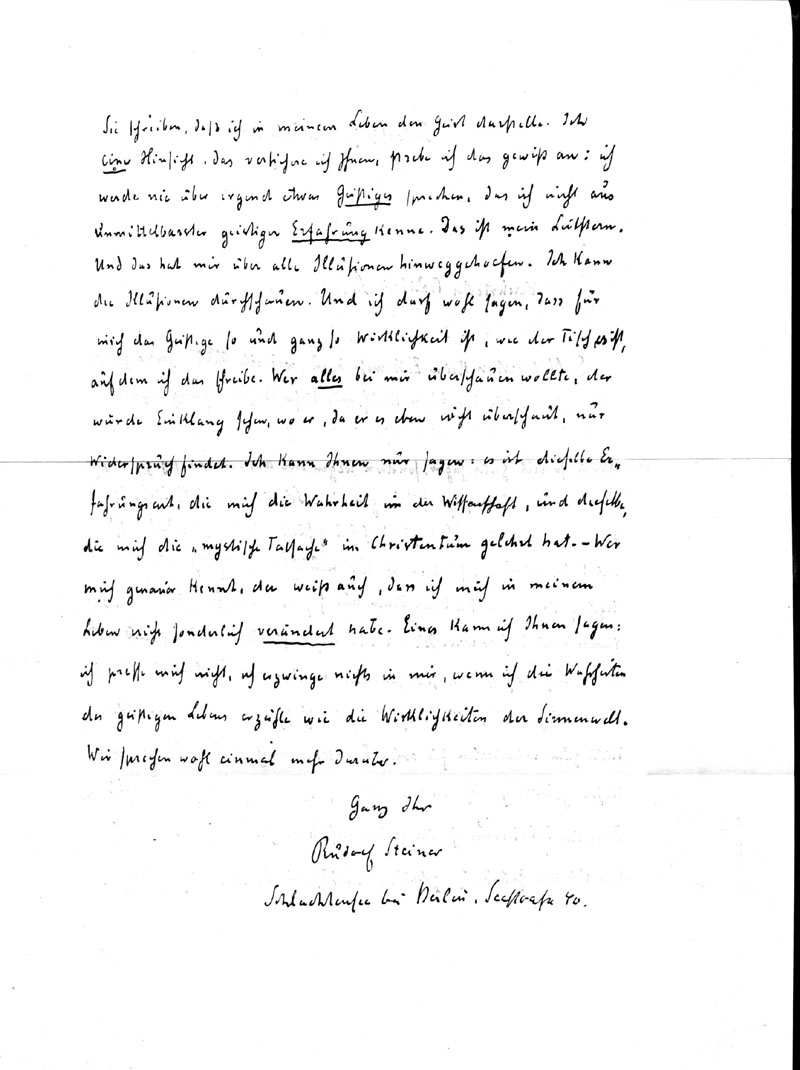 Sie schreiben, daß ich in meinem Leben den Geist darstelle. In
einer Hinsicht, das versichere ich Ihnen, strebe ich das gewiß an: ich
werde nie über irgend etwas Geistiges sprechen, das ich nicht aus
unmittelbarster geistiger Erfahrung kenne. Das ist mein Leitstern.
Und das hat mir über alle Illusionen hinweggeholfen. Ich kann
die Illusionen durchschauen. Und ich darf wohl sagen, dass für
mich das Geistige so und ganz so Wirklichkeit ist, wie der Tisch es ist,
auf dem ich das schreibe. Wer alles bei mir überschauen wollte, der
würde Einklang sehen, wo er, da er es eben nicht überschaut, nur
Widerspruch findet. Ich kann Ihnen nur sagen: es ist dieselbe Er-
fahrungsart, die mich die Wahrheit in der Wissenschaft, und dieselbe,
die mich die „mystische Tatsache" im Christentum gelehrt hat. – Wer
mich genauer kennt, der weiß auch, dass ich mich in meinem
Leben nicht sonderlich verändert habe. Eines kann ich Ihnen sagen:
ich presse mich nicht, ich erzwinge nichts in mir, wenn ich die Wahrheiten
des geistigen Lebens erzähle wie die Wirklichkeiten der Sinnenwelt.
Wir sprechen wohl einmal mehr darüber.
Ganz Ihr
Rudolf Steiner
Schlachtensee bei Berlin, Seestraße 40.